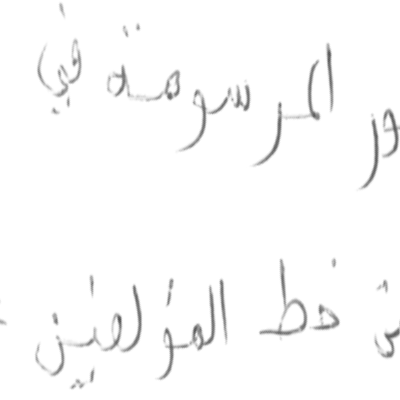 المرسومة في
خط المؤلفين